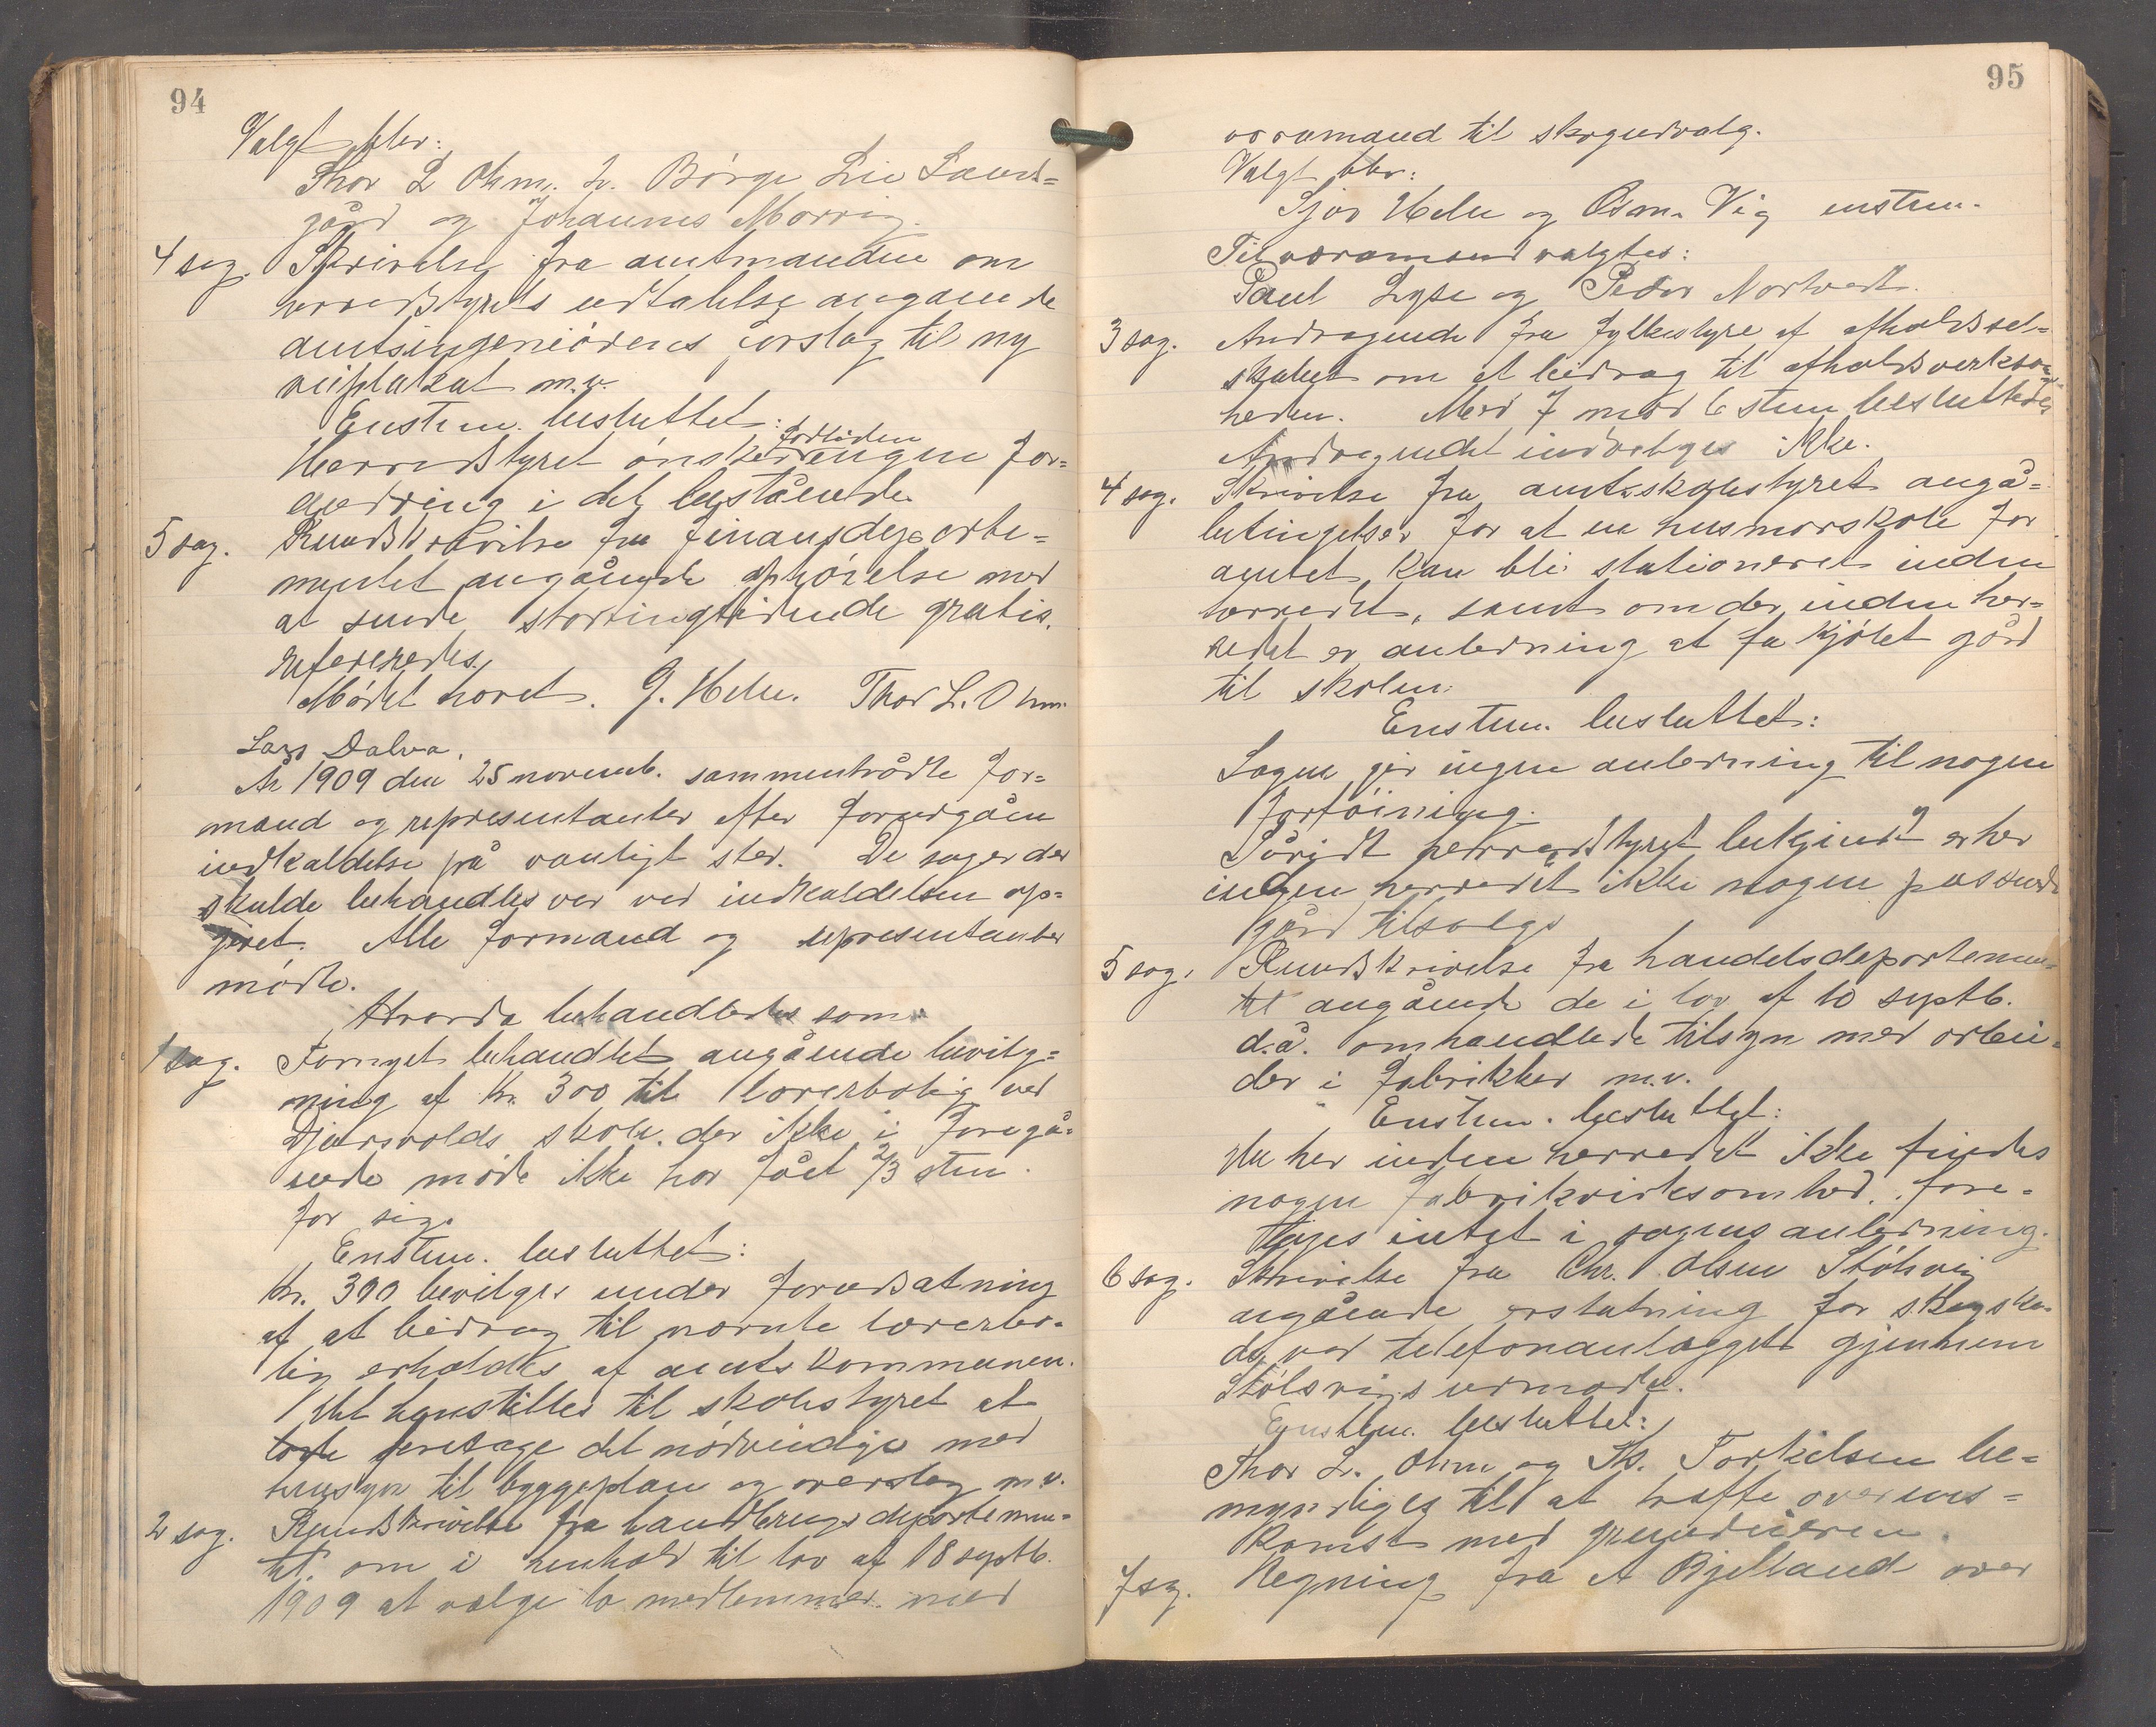 94
Valgt blev:
Thor L Ohm. L. Børge Lie Sand=
gård og Johannes Morvig.
4 sag. Skrivelse fra amtmanden om
herredstyrets udtalelse angående
amtsingeniørens forslag til ny
veiplakat m.v.
Enstem. besluttet:
forliden
Herredstyret ønsker ingen for=
andring i det bestående
5 sag. Rundskrivelse fra finansdeparte=
mentet angående ophørelse med
at sende stortingstidende gratis.
refereredes.
Mødet hævet. G. Helle. Thor L. Ohm.
Lars Dalva.
År 1909 den 25 novemb. sammentrådte for=
mænd og representanter efter forudgåen
indkaldelse på vanligt sted. De sager der
skulde behandles var ved indkaldelsen op=
givet. Alle formænd og representanter
mødte.
Hvorda behandledes som
1 sag. Fornyet behandlet angående bevilg=
ning af Kr. 300 til lærerbolig ved
Djursvolds skole. der ikke i foregå=
ende møde ikke har fået 2/3 stem.
for sig.
Enstem. besluttet:
Kr. 300 bevilges under forudsætning
af at bidrag til nævnte lærerbo=
lig erholdes af amtskommunen.
Det henstilles til skolestyret at
foretage det nødvendige med
hensyn til byggeplan og overslag m.v.
2 sag. Rundskrivelse fra landbrugsdepartemen=
tet. om i henhold til lov af 18 septb.
1909 at vælge to medlemmer med
95
varamænd til skogudvalg.
Valgt blev:
Sjov Helle og Osm. Vig enstem.
Til varamænd valgtes:
Paul Lyse og Peder Nortvedt.
3 sag. Andragende fra fylkestyre af afholdssel=
skabet om et bidrag til afholdsverksom=
heden. Med 7 mod 6 stem besluttedes
Andragendet indvilges ikke.
4 sag. Skrivelse fra amtsskolestyret angå=
betingelser for at en husmorskole for
amtet kan bli stationeret inden
herredet, samt om der inden her=
redet er anledning at få kjøbt gård
til skolen.
Enstem. besluttet:
Sagen gir ingen anledning til nogen
forføining.
Såvidt herredstyret bekjendt er her
inden herredet ikke nogen passende
gård tilsalgs
5 sag. Rundskrivelse fra handelsdepartemen=
tet angående de i lov af 10 septb.
d.å. omhandlede tilsyn med arbei=
der i fabrikker m.v.
Enstem. besluttet:
Da her inden herredet ikke findes
nogen fabrikvirksomhed. fore=
tages intet i sagens anledning.
6 sag. Skrivelse fra Chr. Olsen Stølsvig
angående erstatning for skogska=
de ved telefonanlægget gjennem
Stølsvigs udmark.
Enstem. besluttet:
Thor L. Ohm og Th. Torkelsen be=
myndiges til at træffe overens=
komst med grundeieren.
7 sag. Regning fra A Bjelland over